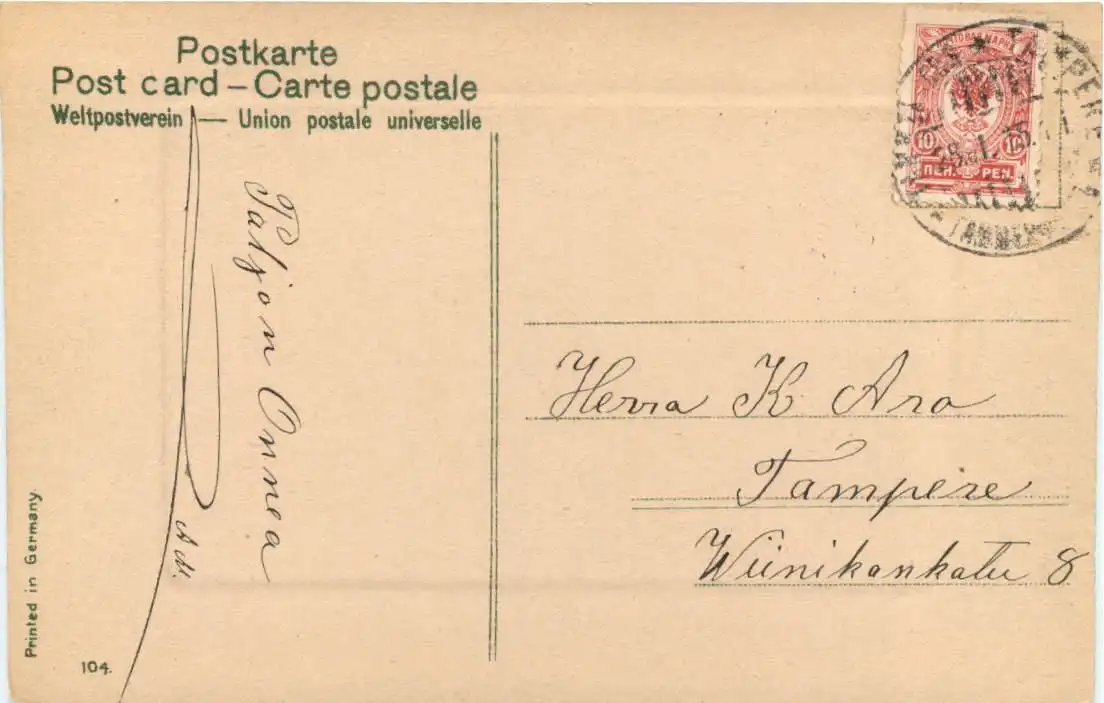 Postkarte
Post card – Carte postale
Weltpostverein — Union postale universelle
Paljon Onnea
A M.
Printed in Germany.
104.
10 10
ПЕН. PEN.
TAMPERE
Herra K Aro
Tampere
Wiinikankatu 8